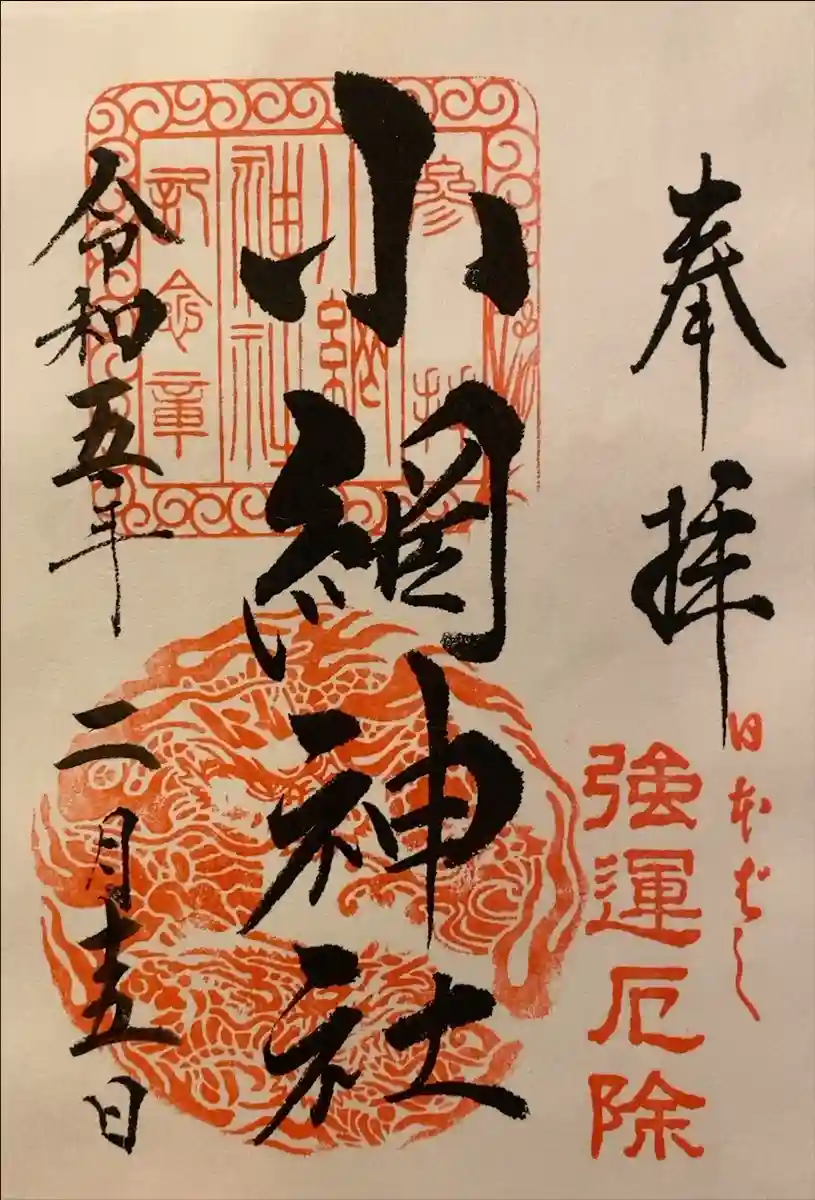 奉拝
日本ばし
強運厄除
小網神社
参拝
小網
神社
記念章
令和五年 二月十五日